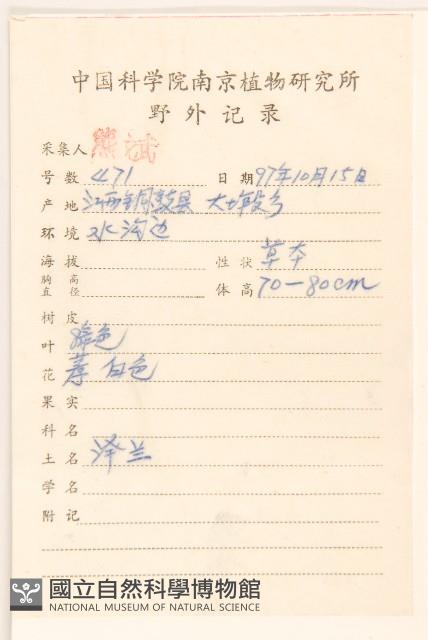 中国科学院南京植物研究所
野外记录
采集人 熊斌
号数 471 日期 97年10月15日
产地 江西铜鼓县 大塅乡
环境 水沟边
海拔 性状 草本
胸高直径 体高 70—80cm
树皮
叶 绿色
花 白色
果实
科名
土名 泽兰
学名
附记
國立自然科學博物館
NATIONAL MUSEUM OF NATURAL SCIENCE